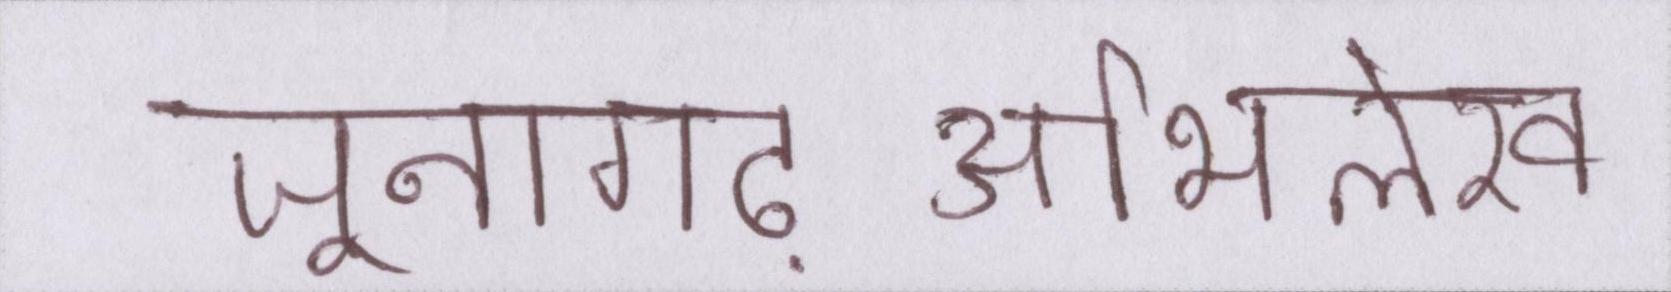 जूनागढ़ अभिलेख